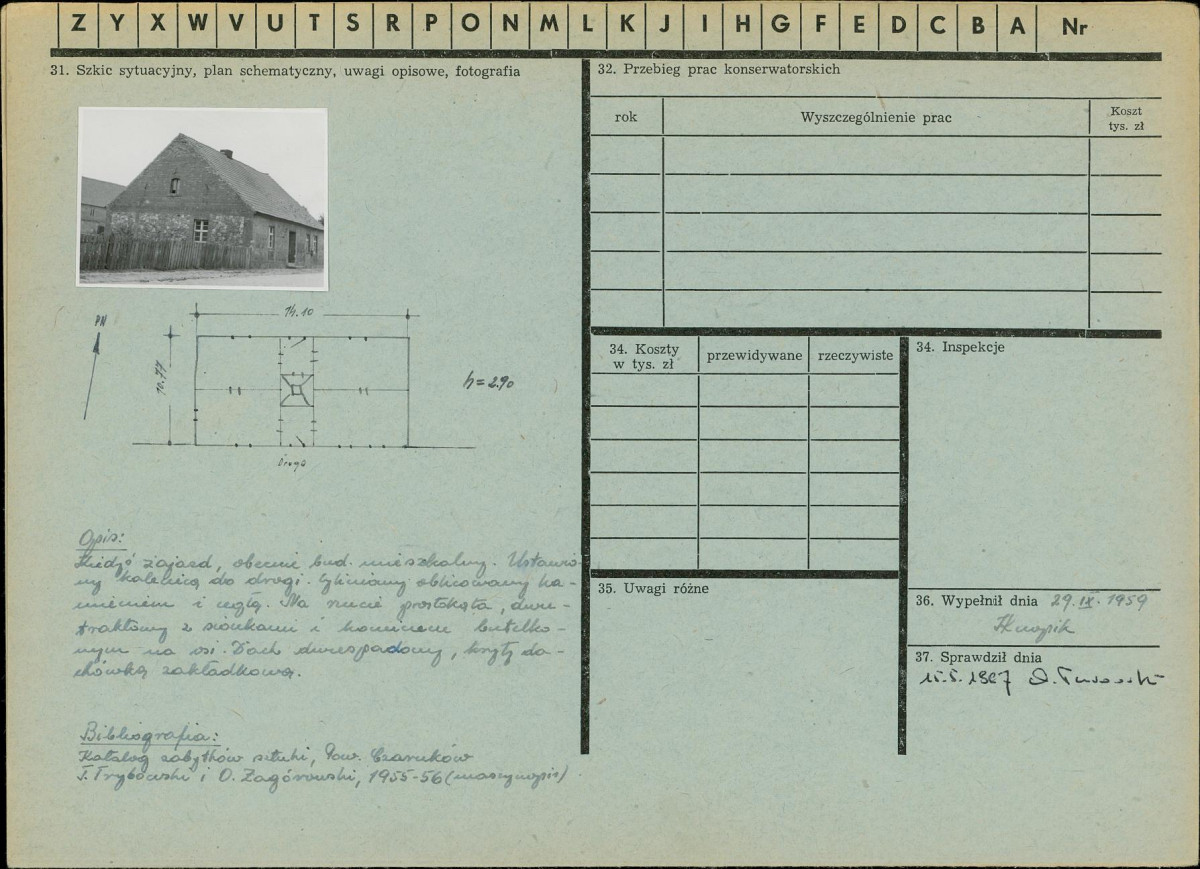 Z Y X W V U T S R P O N M L K J I H G F E D C B A Nr
31. Szkic sytuacyjny, plan schematyczny, uwagi opisowe, fotografia
PN
14.10
10.77
h = 2.90
Droga
Opis:
Kiedyś zajazd, obecnie bud. mieszkalny. Ustawio-
ny kalenicą do drogi. Gliniany oblicowany ka-
mieniem i cegłą. Na rzucie prostokąta, dwu-
traktowy z sionkami i kominem butelko-
wym na osi. Dach dwuspadowy, kryty da-
chówką zakładkową.
Bibliografia:
Katalog zabytków sztuki, Pow. Czarnków
T. Trybowski i O. Zagórowski, 1955-56 (maszynopis)
32. Przebieg prac konserwatorskich
rok
Wyszczególnienie prac
Koszt
tys. zł
34. Koszty
w tys. zł
przewidywane
rzeczywiste
34. Inspekcje
35. Uwagi różne
36. Wypełnił dnia 29.IX.1959
37. Sprawdził dnia
15.5.1967